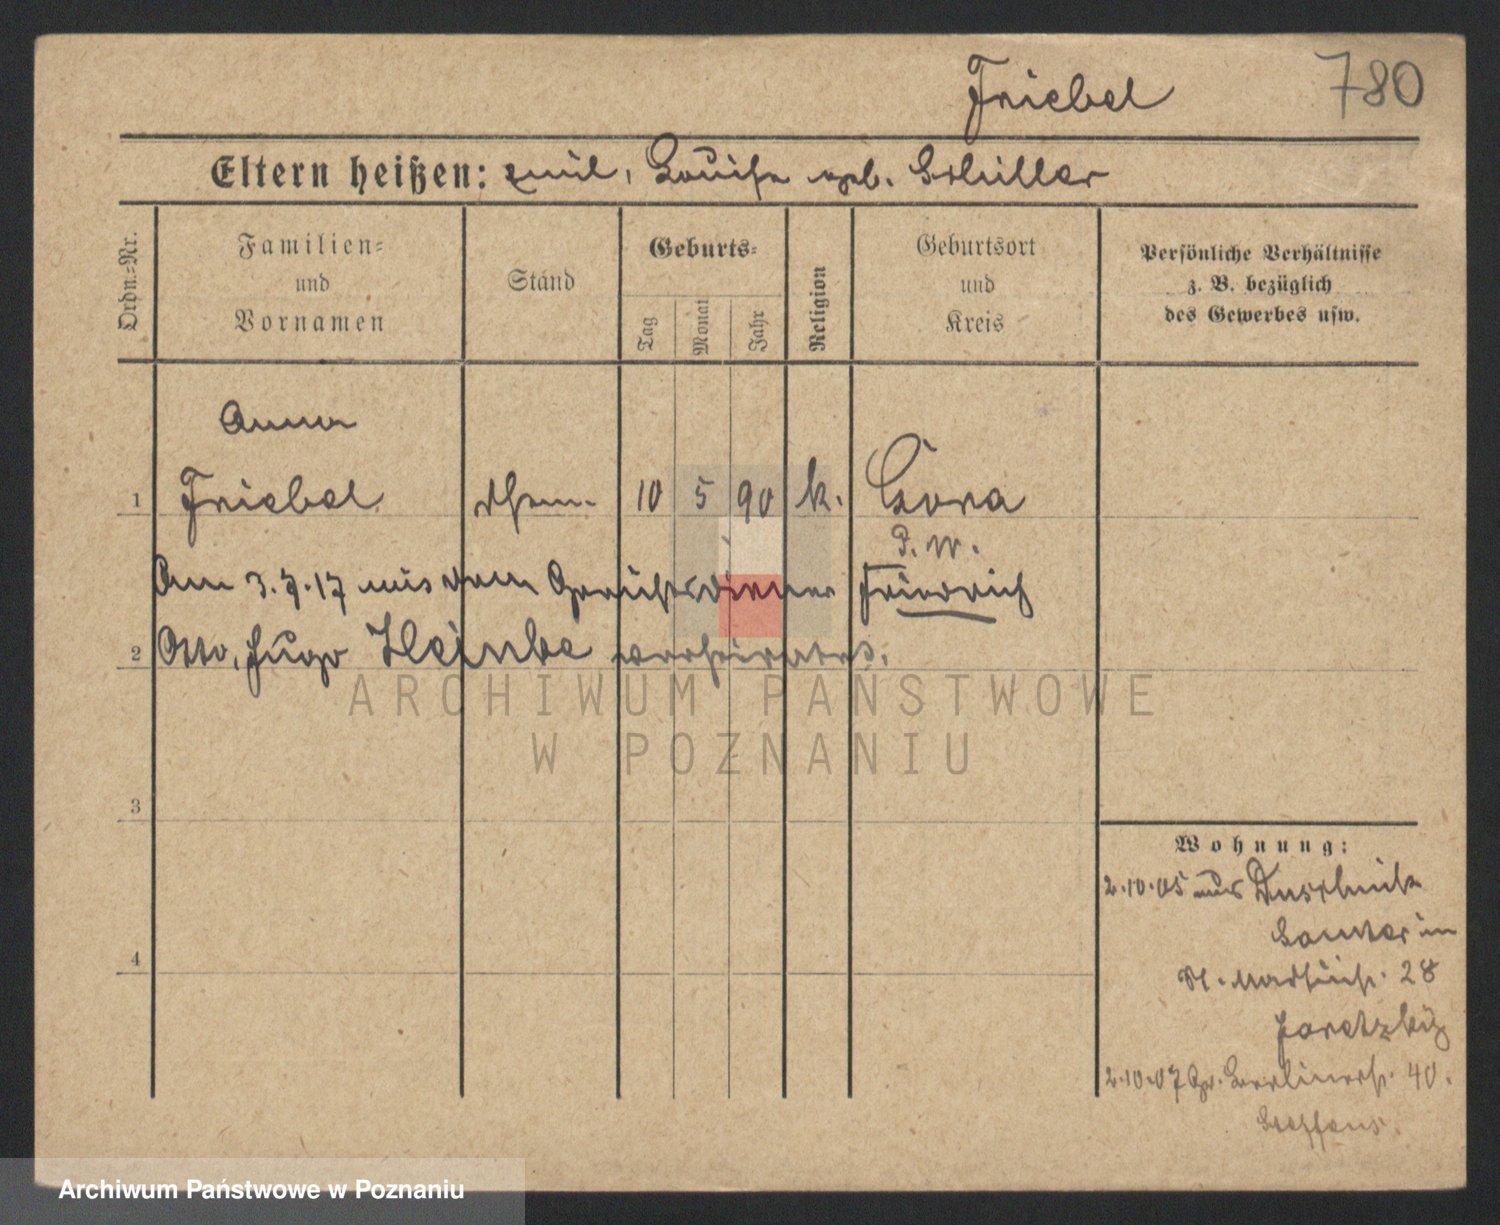 Friebel 780
Eltern heißen: Emil, Louise geb. Schiller
Ordn.=Nr.
Familien=
und
Vornamen
Stand
Geburts=
Tag
Monat
Jahr
Religion
Geburtsort
und
Kreis
Persönliche Verhältnisse
z. B. bezüglich
des Gewerbes usw.
Anna
1 Friebel 10 5 90 k. Gora
P. W.
Am 3.7.17 mit dem Gerichtsdiener Friedrich
2 Otto, Hugo Heinke verheiratet.
ARCHIWUM PAŃSTWOWE
W POZNANIU
3
Wohnung:
2.10.05 aus
28
4
2.10.07 Gr. Berlinerstr. 40.
Steffens.
Archiwum Państwowe w Poznaniu